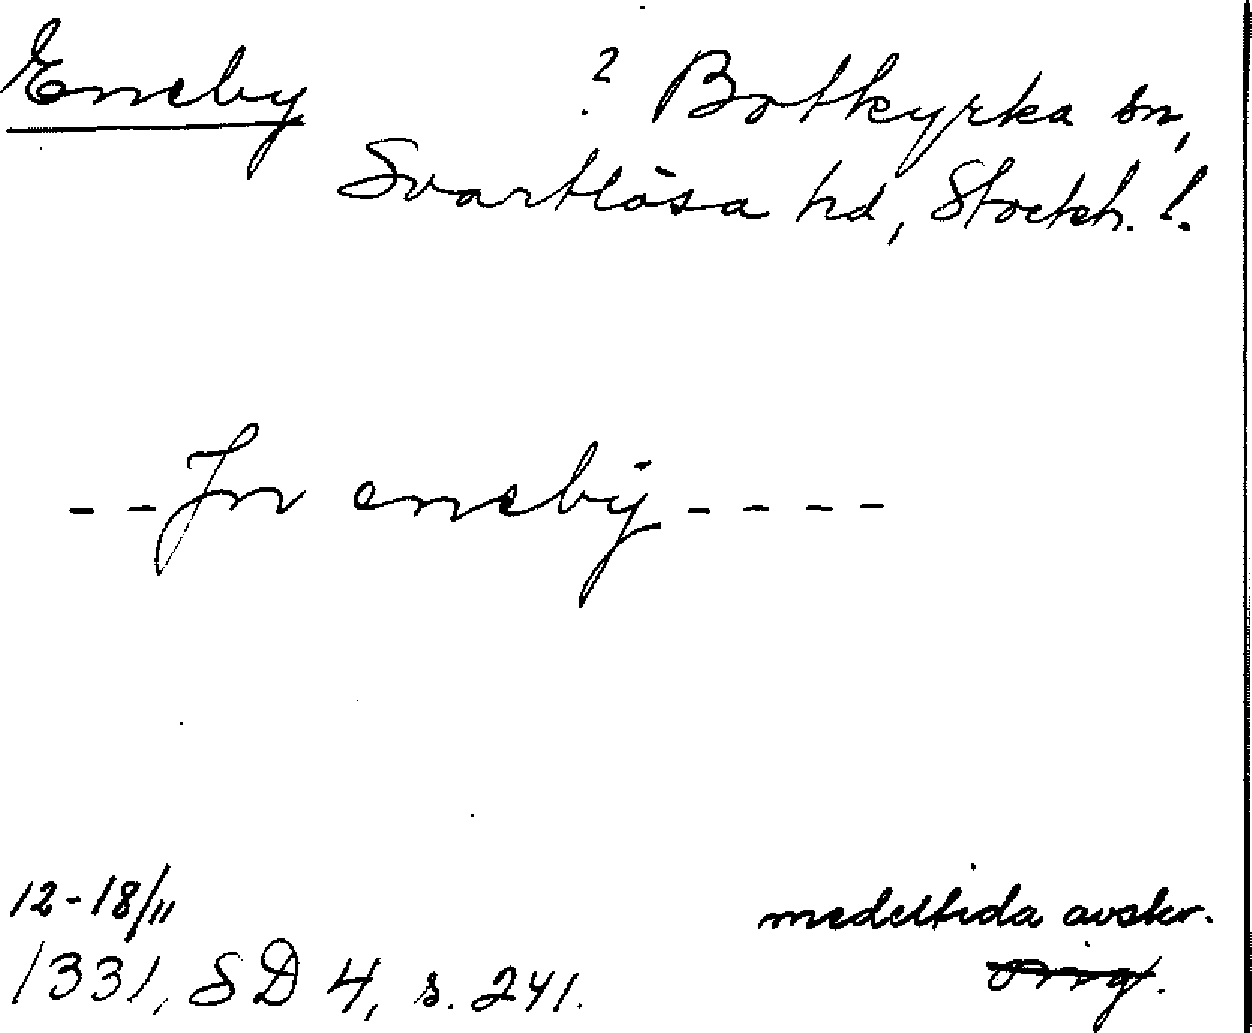 Eneby ? Botkyrka sn,
Svartlösa hd, Stockh. l.
- - Jn enebÿ - - - -
12-18/11 medeltida avskr.
1331, SD 4, s. 241. orig.